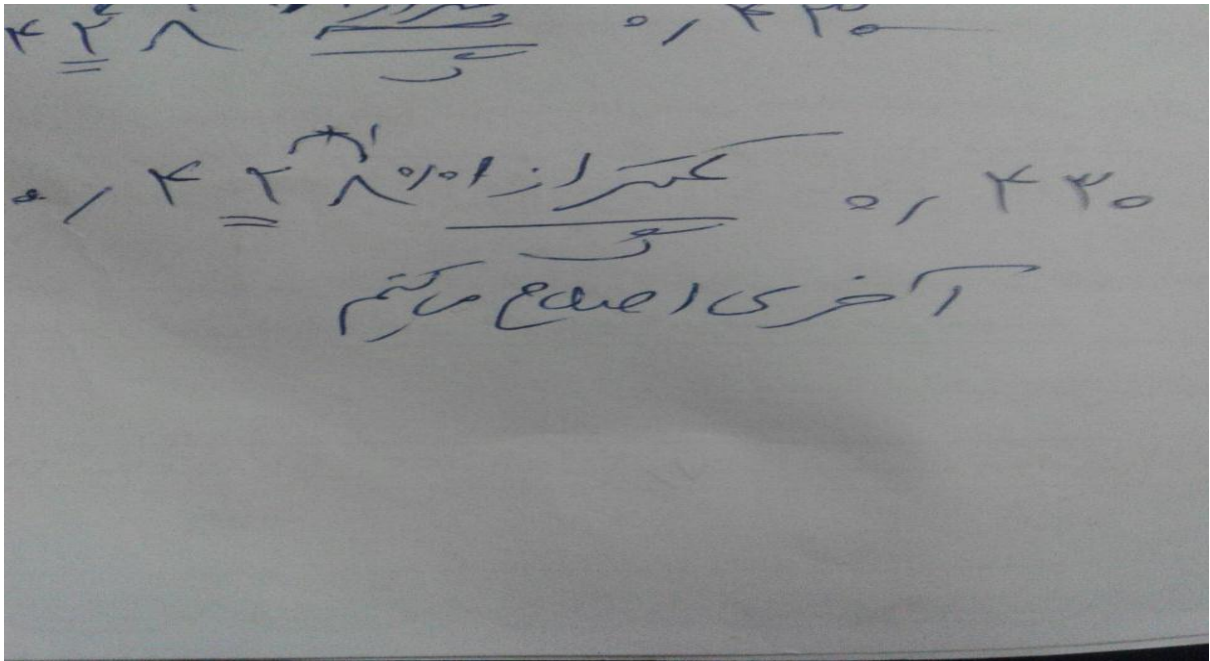 ۴۲۸ ۰٫۴۳۰
۰٫۴۲۸ کمتر از ۰٫۰۱ گ ۰٫۴۳۰
آخری اصلاح می‌کنم